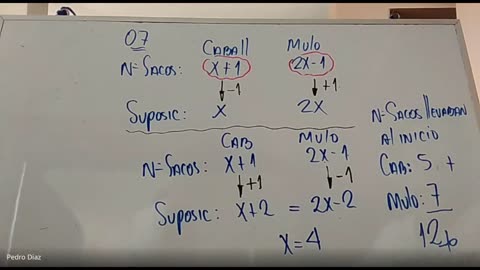 07
CABALL MULO
Nº SACOS: X+1 2X-1
-1 +1
SUPOSIC: X 2X
CAB MULO
Nº SACOS: X+1 2X-1
+1 -1
SUPOSIC: X+2 = 2X-2
X=4
Nº SACOS LLEVABAN
Al INICIO
CAB: 5 +
MULO: 7
12
Pedro Diaz